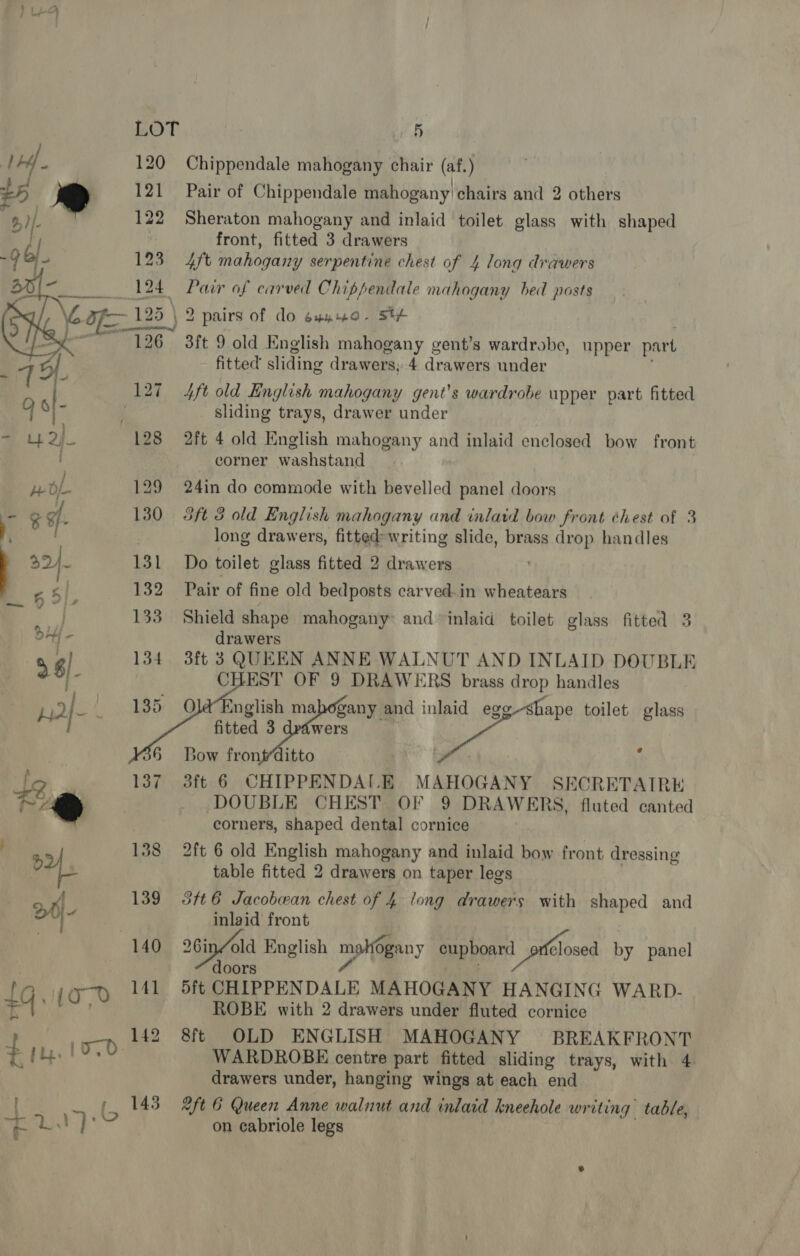 LOT 5
14/- 120 Chippendale mahogany chair (af.)
121 Pair of Chippendale mahogany chairs and 2 others
122 Sheraton mahogany and inlaid toilet glass with shaped
front, fitted 3 drawers
96/- 123 4ft mahogany serpentine chest of 4 long drawers
124 Pair of carved Chippendale mahogany bed posts
125 2 pairs of do
126 3ft 9 old English mahogany gent's wardrobe, upper part
fitted sliding drawers, 4 drawers under
127 4ft old English mahogany gent's wardrobe upper part fitted
sliding trays, drawer under
42/- 128 2ft 4 old English mahogany and inlaid enclosed bow front
corner washstand
129 24in do commode with bevelled panel doors
130 3ft 3 old English mahogany and inlaid bow front chest of 3
long drawers, fitted writing slide, brass drop handles
32/- 131 Do toilet glass fitted 2 drawers
55/- 132 Pair of fine old bedposts carved in wheatears
133 Shield shape mahogany and inlaid toilet glass fitted 3
drawers
134 3ft 3 QUEEN ANNE WALNUT AND INLAID DOUBLE
CHEST OF 9 DRAWERS brass drop handles
135 Old English mahogany and inlaid egg-shape toilet glass
fitted 3 drawers
136 Bow front ditto
137 3ft 6 CHIPPENDALE MAHOGANY SECRETAIRE
DOUBLE CHEST OF 9 DRAWERS, fluted canted
corners, shaped dental cornice
138 2ft 6 old English mahogany and inlaid bow front dressing
table fitted 2 drawers on taper legs
139 3ft 6 Jacobæan chest of 4 long drawers with shaped and
inlaid front
140 26in old English mahogany cupboard enclosed by panel
doors
£9.10.0 141 5ft CHIPPENDALE MAHOGANY HANGING WARD-
ROBE with 2 drawers under fluted cornice
£14.10.0 142 8ft OLD ENGLISH MAHOGANY BREAKFRONT
WARDROBE centre part fitted sliding trays, with 4
drawers under, hanging wings at each end
143 2ft 6 Queen Anne walnut and inlaid kneehole writing table,
on cabriole legs